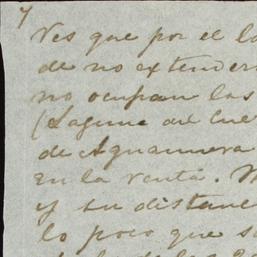 7
Ves que por el la
de no extender
no ocupan las
(Laguna del Cue
de Aguanueva
en la venta.
y su distanc
lo poco que s